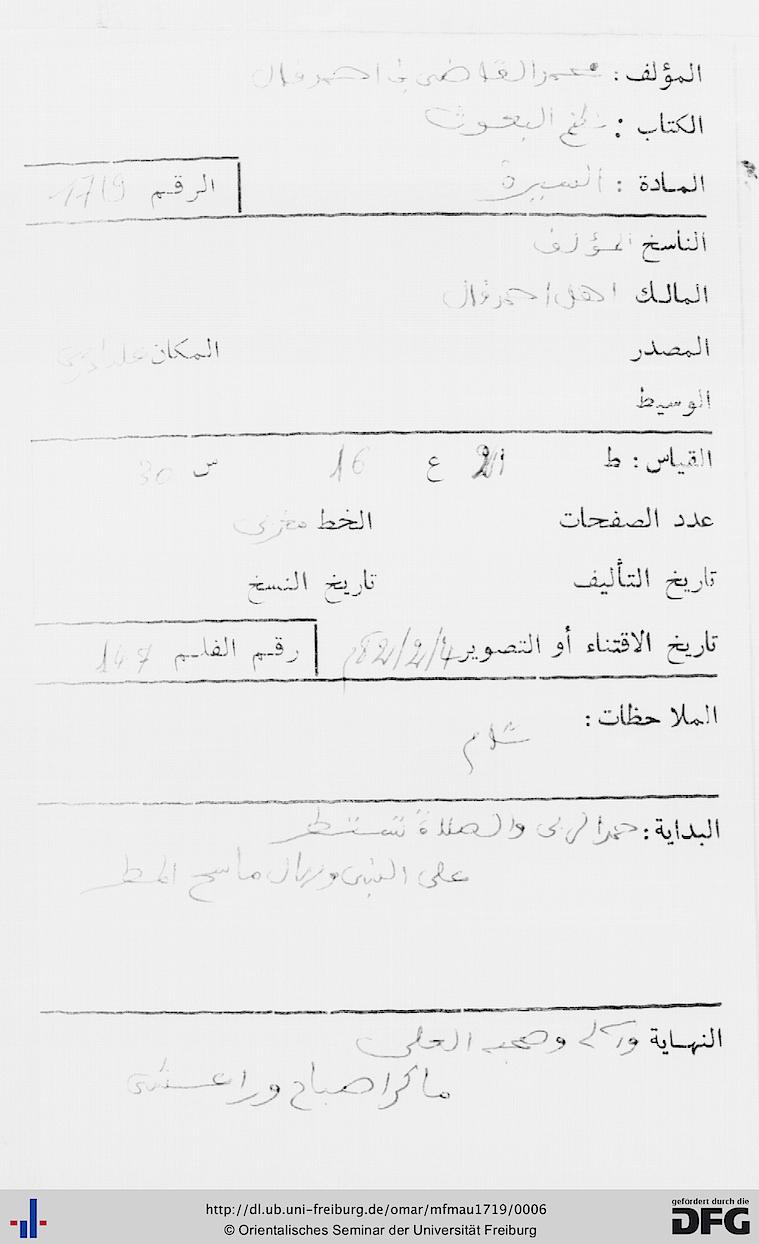 المؤلف : محمد القاضي بن احمد فال
الكتاب : نظم البعوث
المادة : السيرة
الرقم 1719
الناسخ المؤلف
المالك اهل احمد فال
المصدر المكان
الوسيط
القياس : ط 21 ع 16 س 30
عدد الصفحات الخط مغربي
تاريخ التأليف تاريخ النسخ
تاريخ الاقتناء أو التصوير 82/2/4م رقم الفلم 147
الملاحظات :
البداية : حمدا لربي والصلاة تستطر
على النبي ما سح المطر
النهاية وآله وصحبه
ما كر صباح
http://dl.ub.uni-freiburg.de/omar/mfmau1719/0006
© Orientalisches Seminar der Universität Freiburg
gefördert durch die
DFG